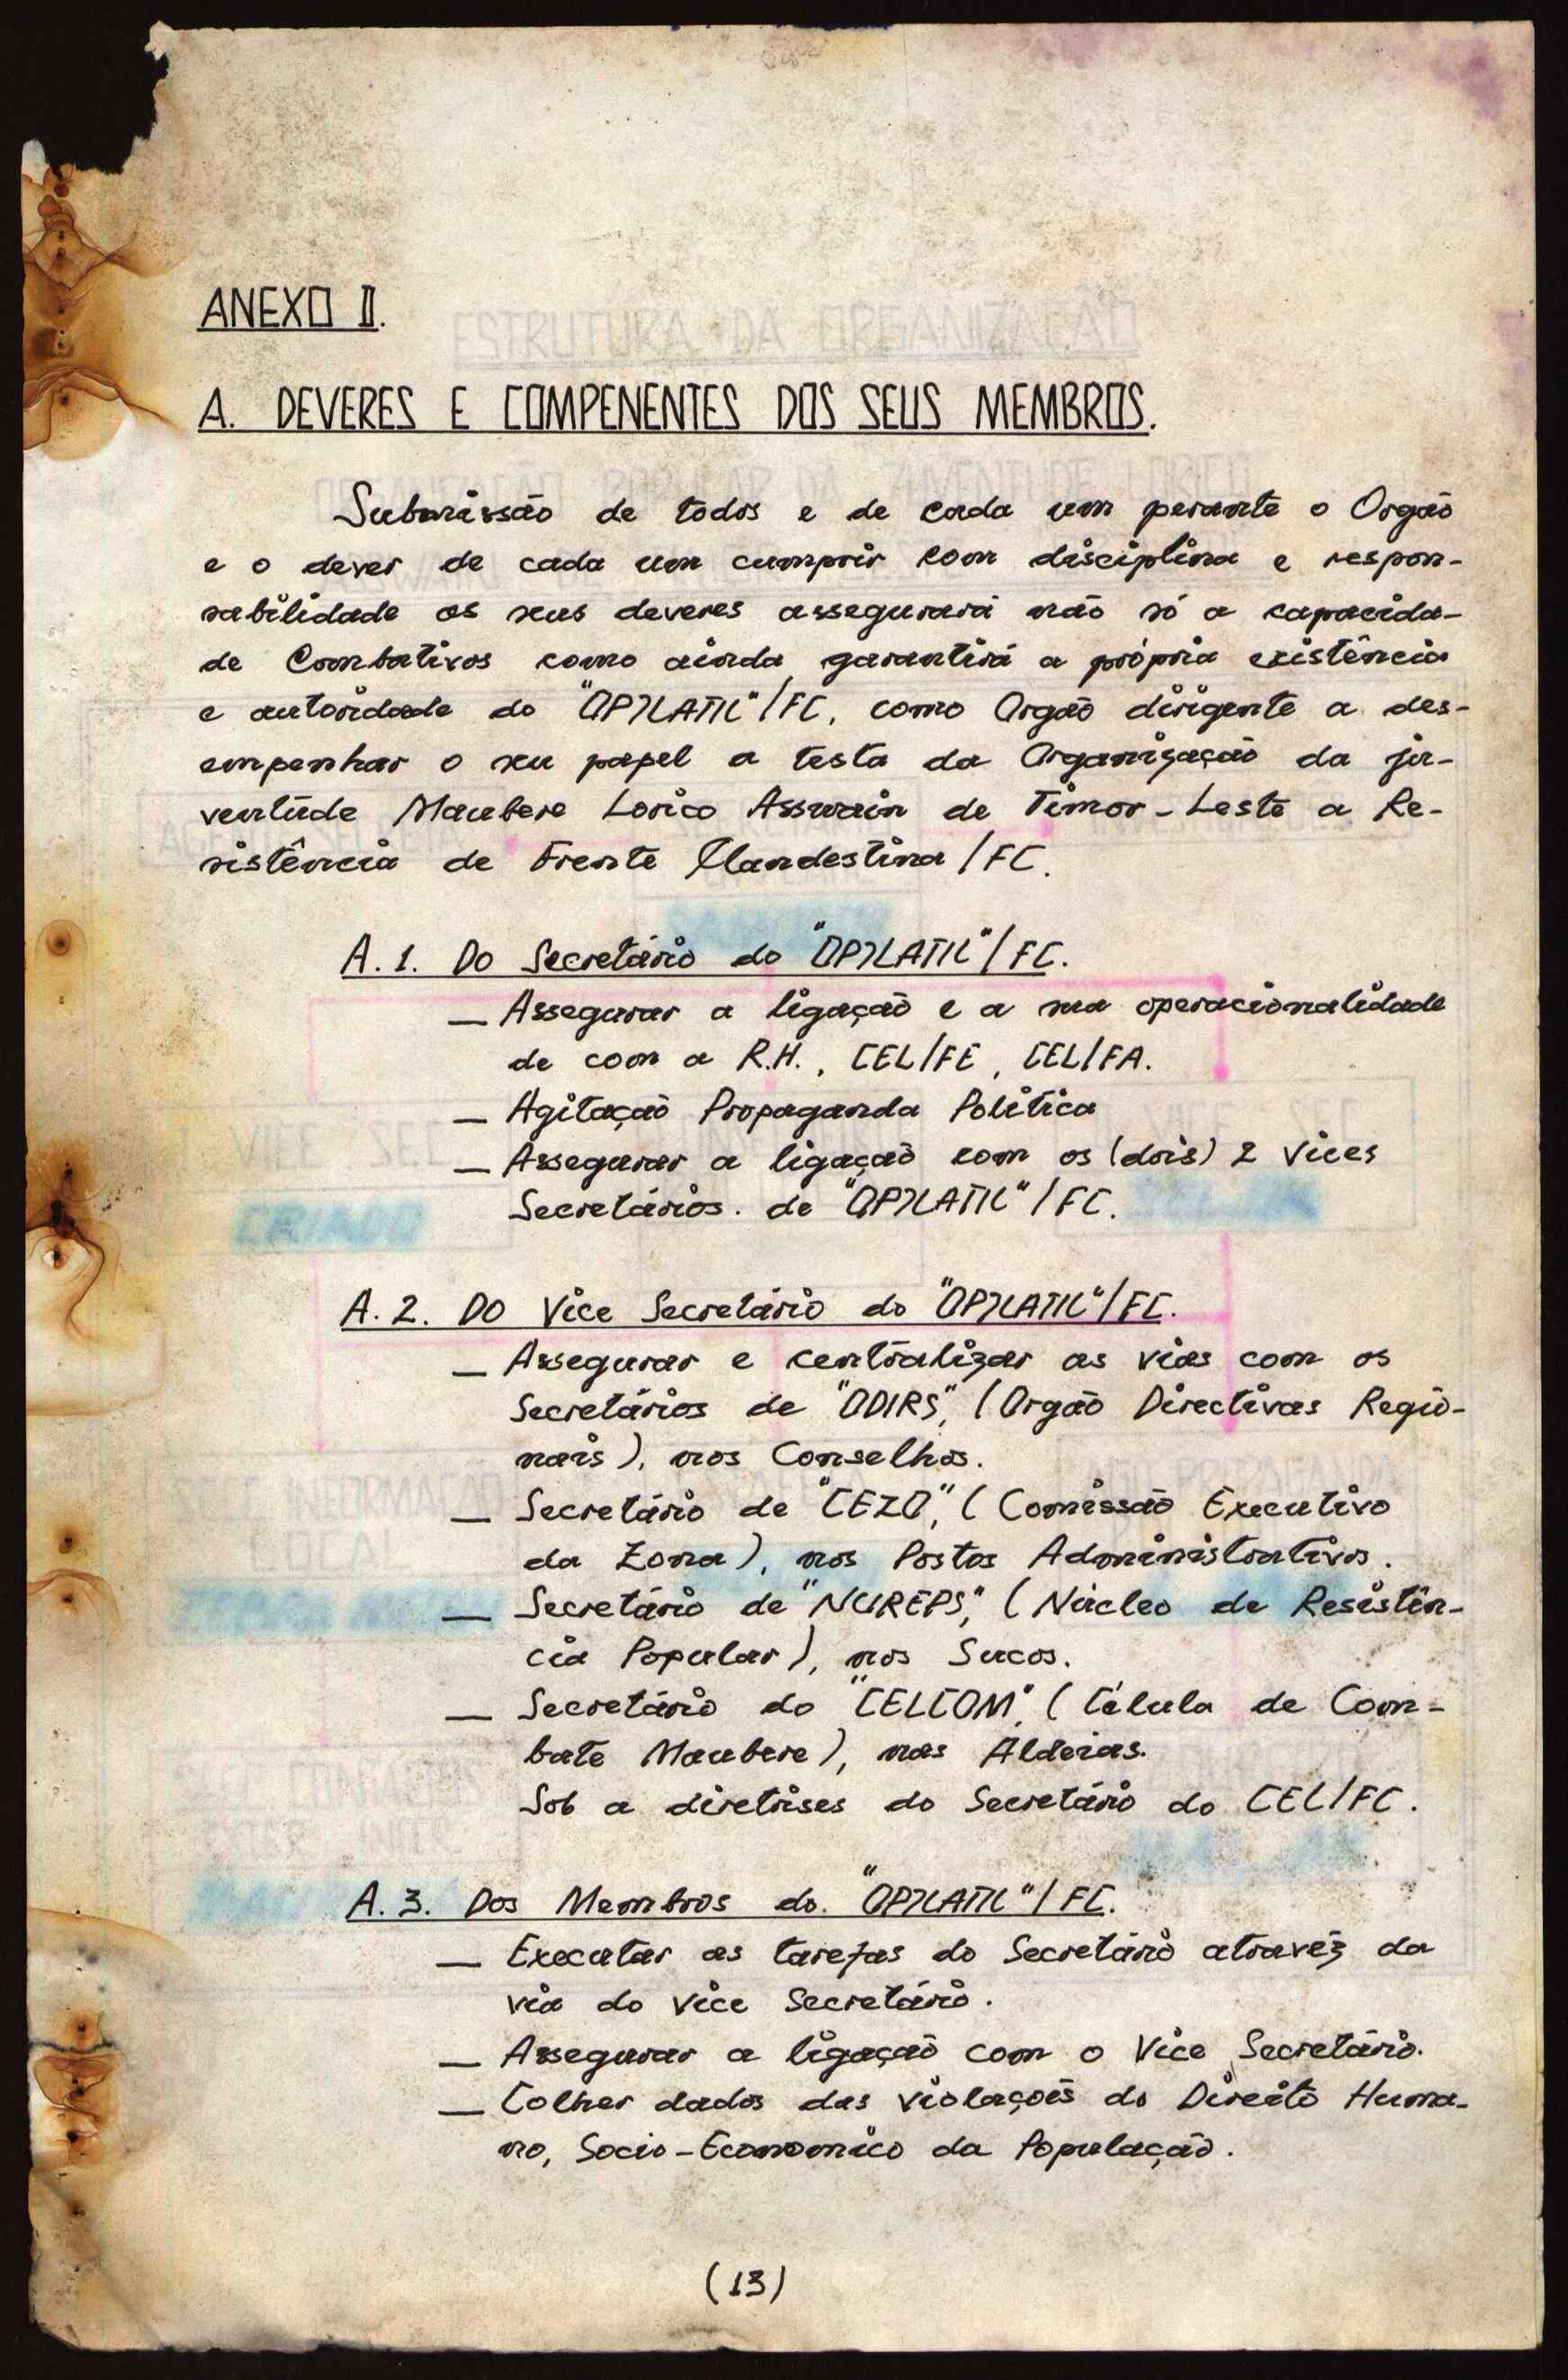 ANEXO II.
A. DEVERES E COMPENENTES DOS SEUS MEMBROS.
Submissão de todos e de cada um perante o Orgão
e o dever de cada um cumprir com disciplina e respon-
sabilidade os seus deveres assegurará não só a capacida-
de Combativos como ainda garantirá a própria existência
e autoridade do "OPJLATIL"/FC, como Orgão dirigente a des-
empenhar o seu papel a testa da Organização da ju-
ventude Maubere Lorico Asswain de Timor-Leste a Re-
sistência de Frente Clandestina/FC.
A.1. Do Secretário do "OPJLATIL"/FC.
_ Assegurar a ligação e a sua operacionalidade
de com a R.H., CEL/FE, CEL/FA.
_ Agitação Propaganda Política
_ Assegurar a ligação com os (dois) 2 Vices
Secretários. de "OPJLATIL"/FC.
A.2. DO Vice Secretário do "OPJLATIL"/FC.
_ Assegurar e centralizar as vias com os
Secretários de "ODIRS", (Orgão Directivas Regio-
nais), nos Conselhos.
_ Secretário de "CEZO", (Comissão Executivo
da Zona), nos Postos Administrativos.
_ Secretário de "NUREPS", (Núcleo de Resistên-
cia Popular), nos Sucos.
_ Secretário do "CELCOM", (Célula de Com-
bate Maubere), nas Aldeias.
Sob a diretrises do Secretário do CEL/FC.
A.3. Dos Membros do. "OPJLATIL"/FC.
_ Executar as tarefas do Secretário atravéz da
via do Vice Secretário.
_ Assegurar a ligação com o Vice Secretário.
_ Colher dados das violaçoẽs do Direito Huma-
no, Socio-Economico da População.
(13)